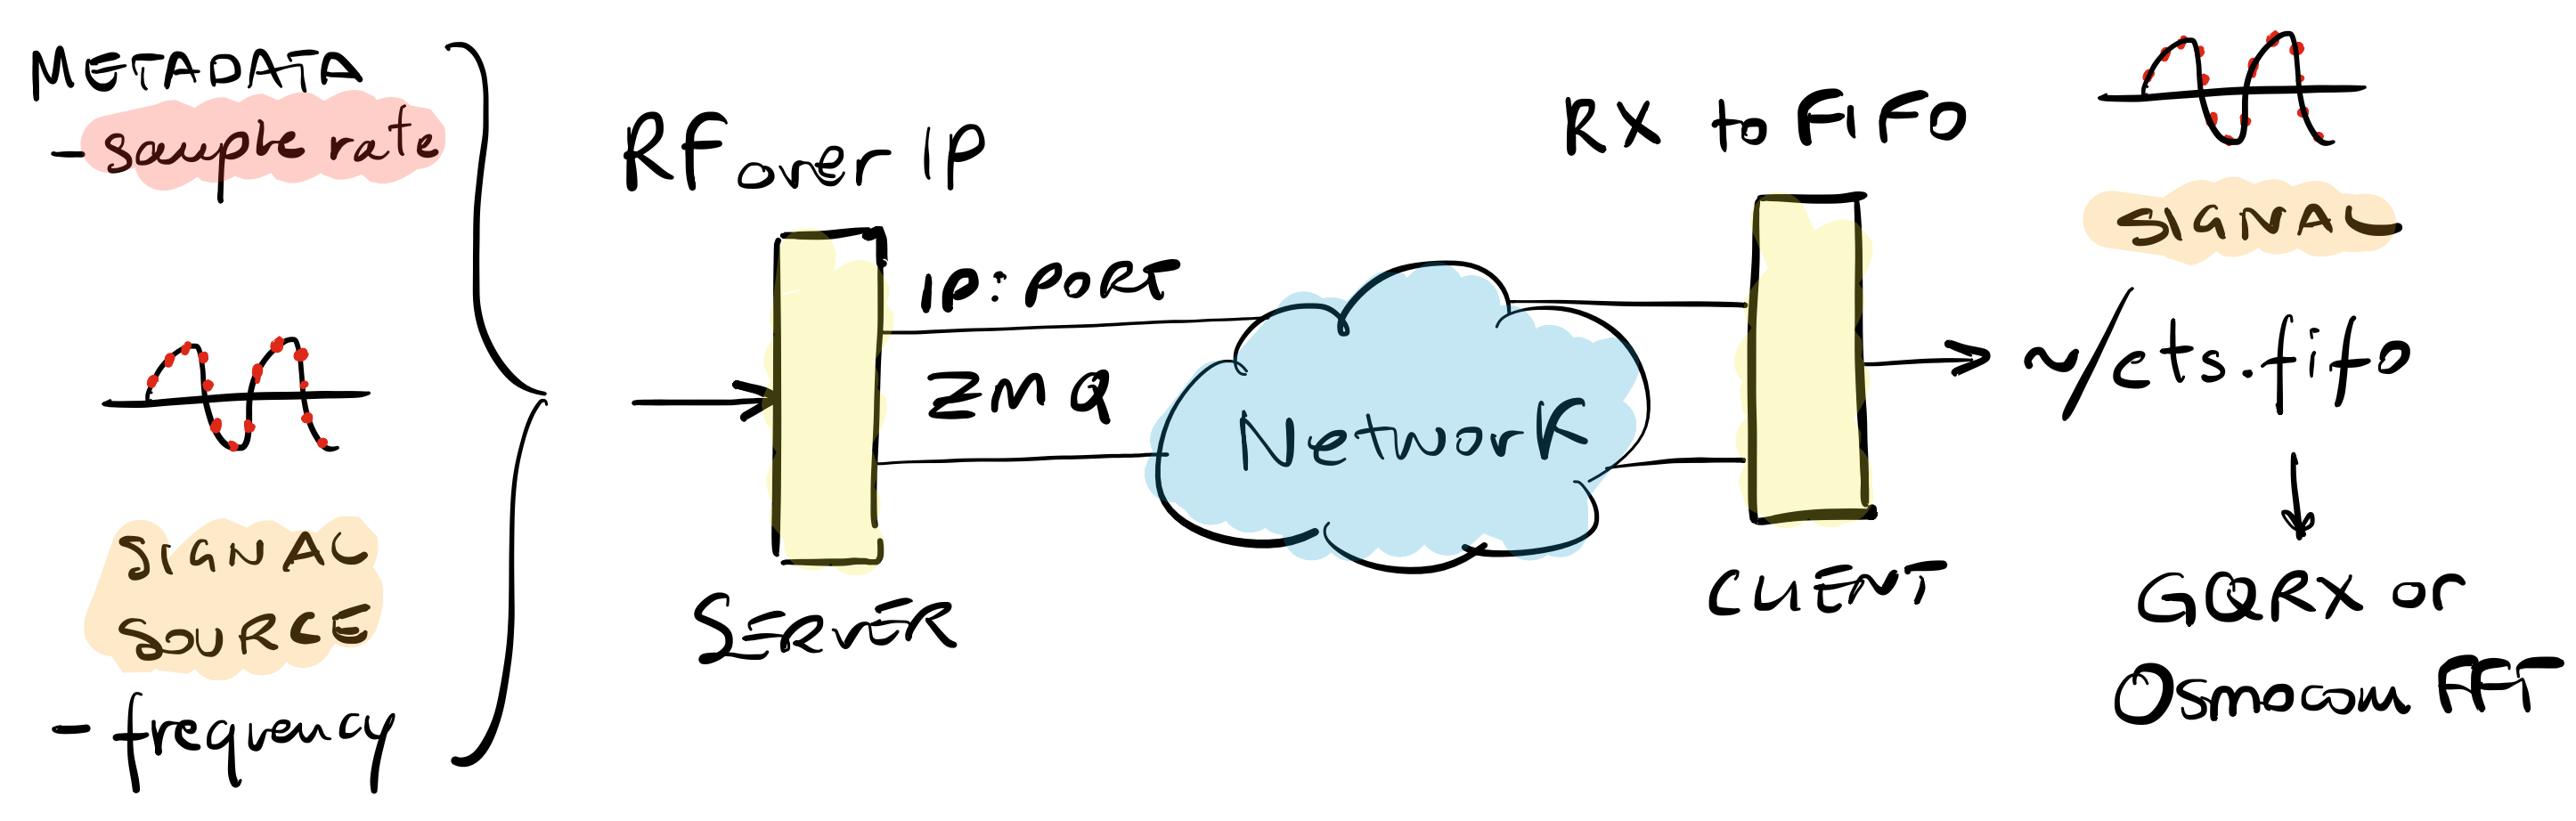 METADATA
- sample rate
SIGNAL
SOURCE
- frequency
RF over IP
IP: PORT
ZMQ
SERVER
Network
RX to FIFO
CLIENT
SIGNAL
~/cts.fifo
GQRX or
Osmocom FFT